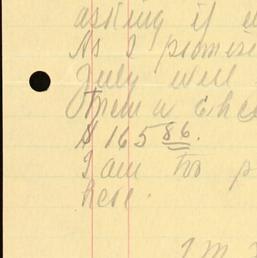 asking if
As I promise
July will
Them a che
$165 86.
I am too p
here.
I'm